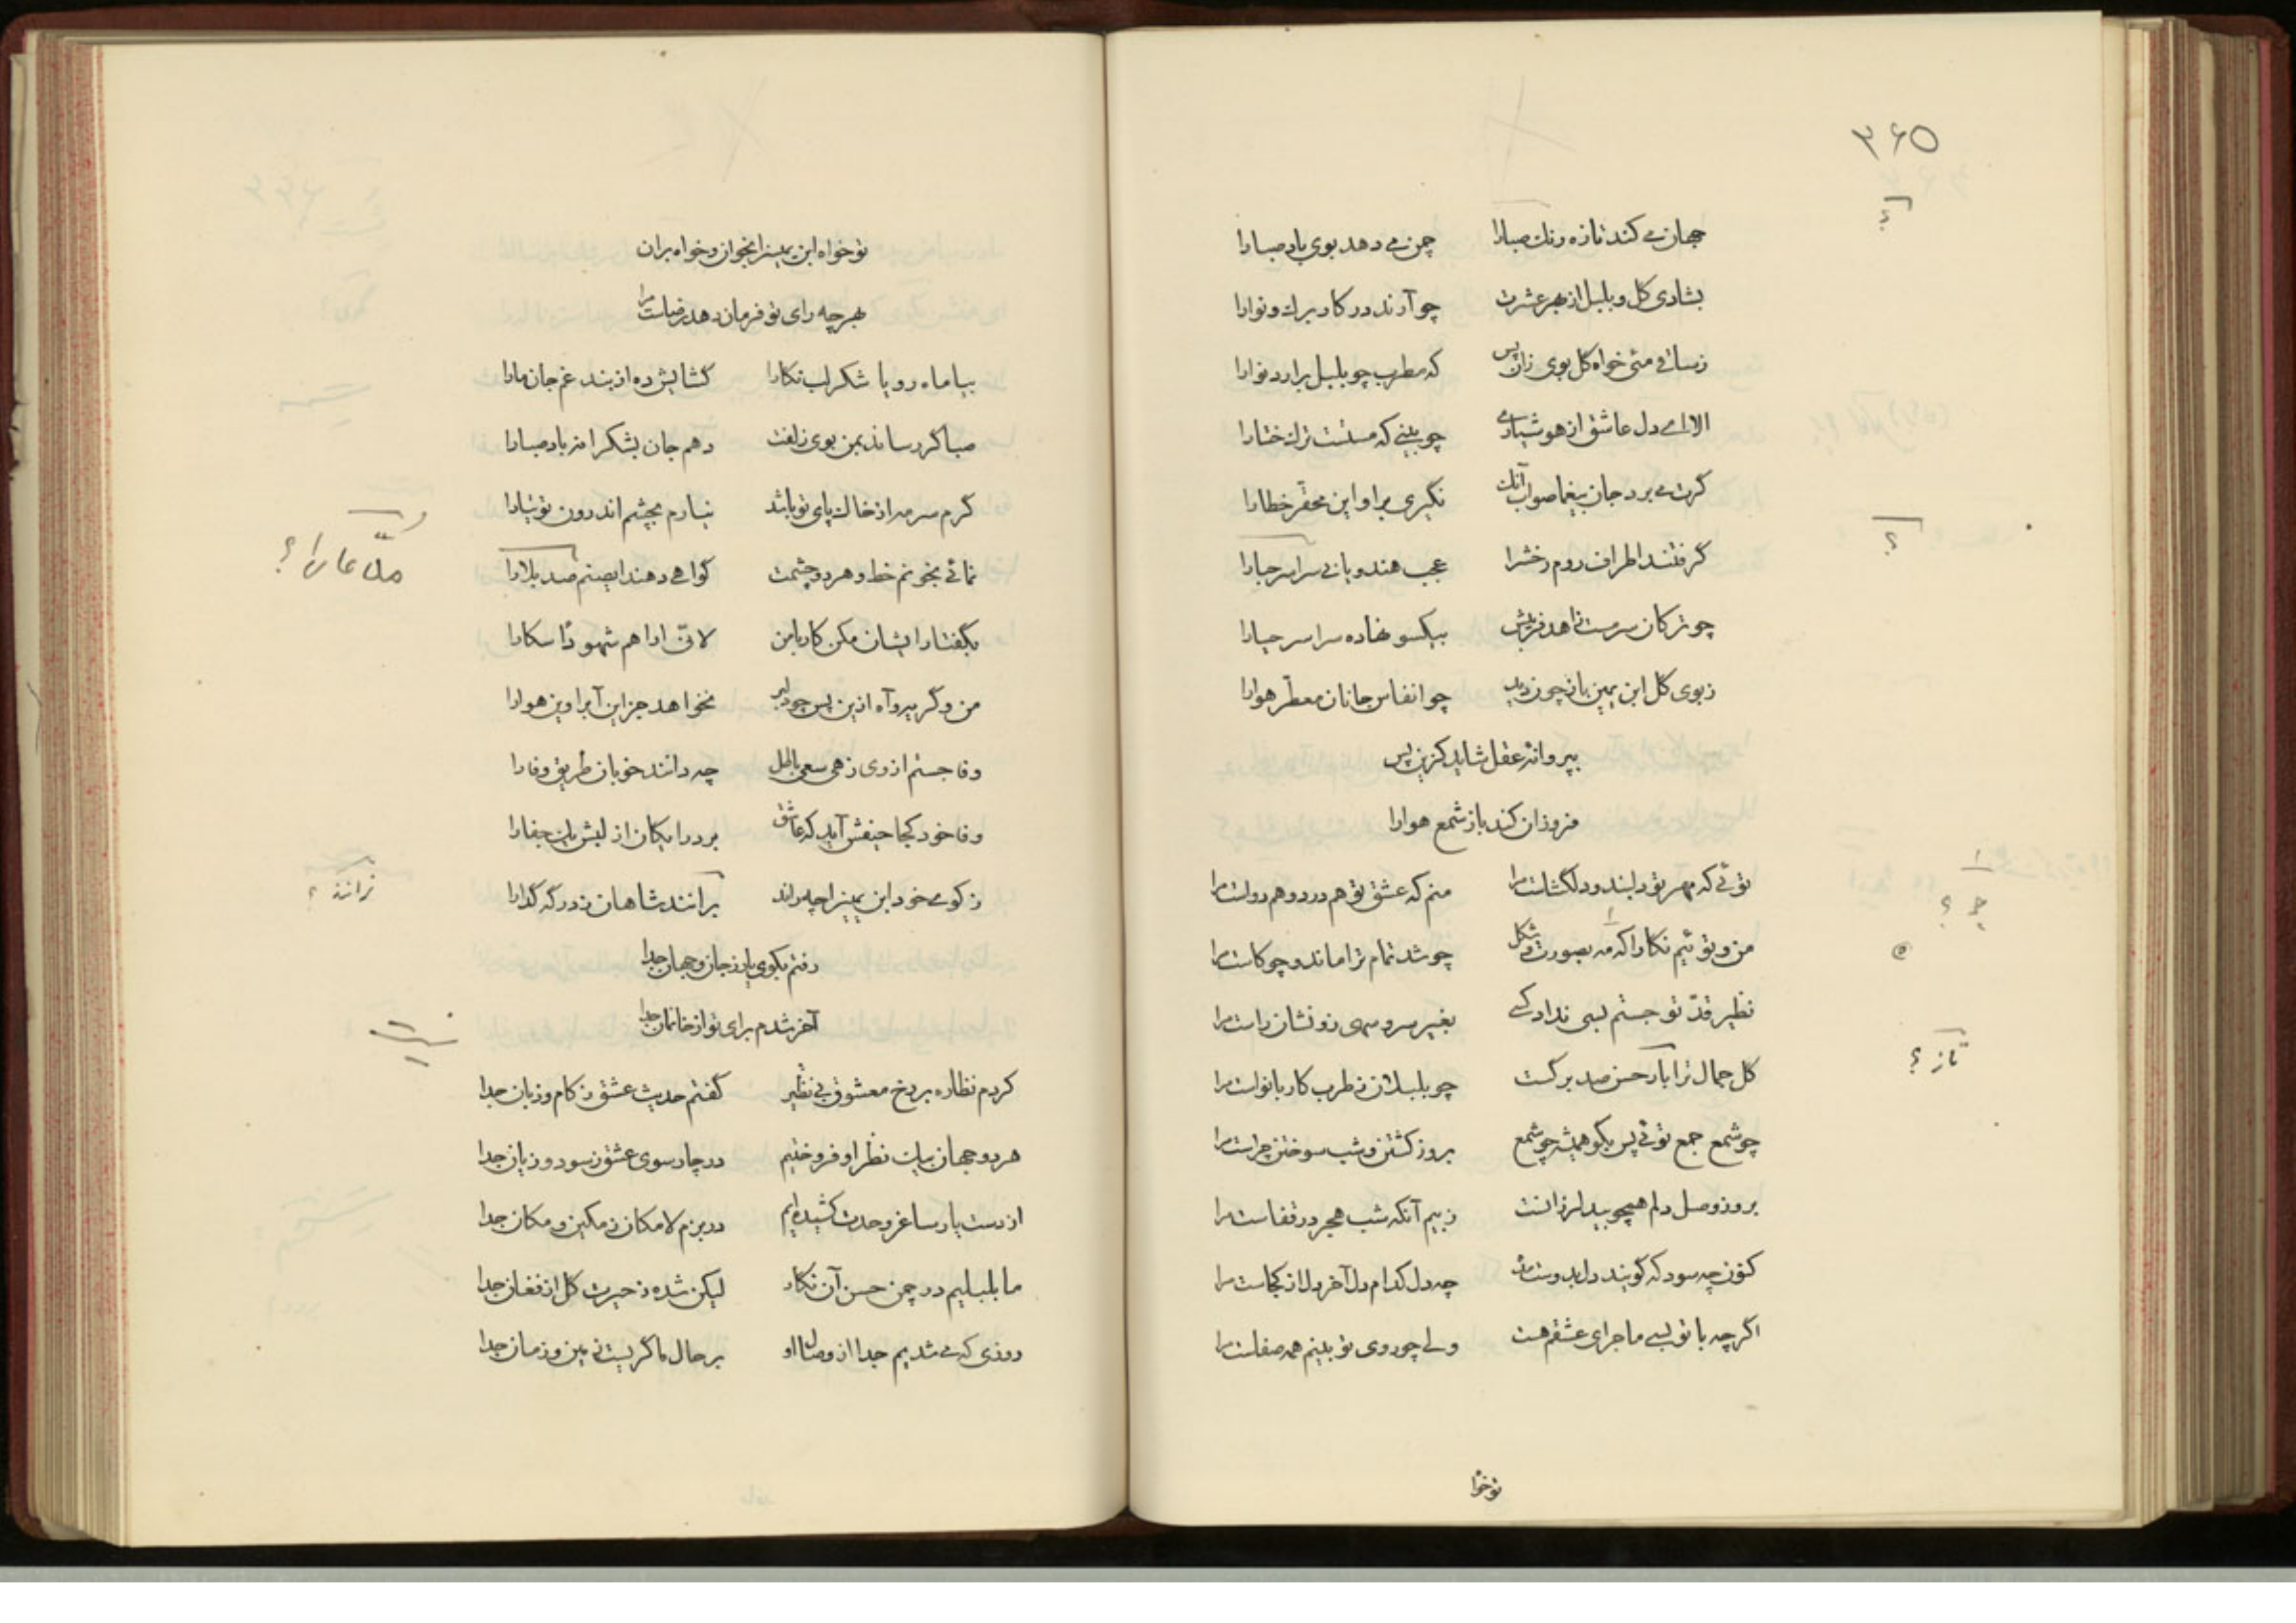 ۳۶۵
جهان می کند تازه رنك صبارا چمن می دهد بوی باد صبارا
بشادی کل و بلبل از بهر عشرت چو آرند در کار برك و نوارا
ز ساقی مئی خواه کل بوی زان پس که مطرب چو بلبل برارد نوارا
الا ای دل عاشق از هوشیاری چو بینی که مستست ترك ختارا
کرت می برد جان بیغما صواب آنك نگیری برا و این محقّر خطارا
؟
گرفتند اطراف روم رخش را عجب هندویانی سراسر حبارا
چو ترکان سرمست بیکسو نهاده سراسر حیارا
ز بوی کل ابن یمین باز چون دید چو انفاس جانان معطّر هوارا
بپروانهٔ عقل شاید کزین پس
فروزان کند باز شمع هوارا
توئی که مهر تو دلبند و دلگشاست مرا منم که عشق تو هم درد و هم دواست مرا
؟
من و تو ئیم نکارا که مه بصورت و شکل چو شد تمام ترا ماند و چو کاست مرا
نظیر قدّ تو جستم بسی نداد کسی بغیر سرو سهی زو نشان راست مرا
کل جمال ترا باز حسن صد برکست چو بلبلان ز طرب کار با نواست مرا
تاز ؟
چو شمع جمع توئی پس بکو همیشه چو شمع بروز کشتن و شب سوختن چراست مرا
بروز وصل دلم همچو بید لرزانست ز بیم آنکه شب هجر در قفاست مرا
کنون چه سود که کویند دل بدوست مده چه دل کدام دل آخر دل از کجاست مرا
اگر چه با تو بسی ماجرای عشقم هست ولی چو روی تو بینم همه صفاست مرا
تو خوا
تو خواه ابن یمین را بخوان و خواه بران
بهر چه رای تو فرمان دهد رضاست مرا
بیا ماه رویا شکر لب نکارا کشایش ده از بند غم جان مارا
صبا کر رساند بمن بوی زلفت دهم جان بشکرانه باد صبارا
کرم سرمه از خاك پای تو باشد نیارم بچشم اندرون توتیارا
بخونم خط و هر دو چشمت کواهی دهند ایصنم صد بلارا
؟
بگفتار ایشان مکن کار با من لانّی اراهم شهودًا سکارا
من و گریه و آه ازین پس چو دلبر نخواهد جز این آب و این هوارا
وفا جستم از وی زهی سعی باطل چه دانند خوبان طریق وفارا
وفا خود کجا آید که عاشق برد رایکان از لبش یك جفارا
ز کوی خود ابن یمین را چه راند برانند شاهان ز درگه گدارا
نرانند ؟
رفتم بکوی یار ز جان و جهان جدا
آخر شدم برای تو از خانمان جدا
کردم نظاره بر رخ معشوق بی نظیر گفتم حدیث عشق ز کام و زبان جدا
هر دو جهان بیك نظر او فروختیم در چار سوی عشق ز سود و زیان جدا
از دست یار ساغر وحدت کشیده ایم در بزم لامکان ز مکین و مکان جدا
ما بلبلیم در چمن حسن آن نکار لیکن شده ز حیرت کل از فغان جدا
روزی که می شدیم جدا از وصال او بر حال ما گریست زمین و زمان جدا